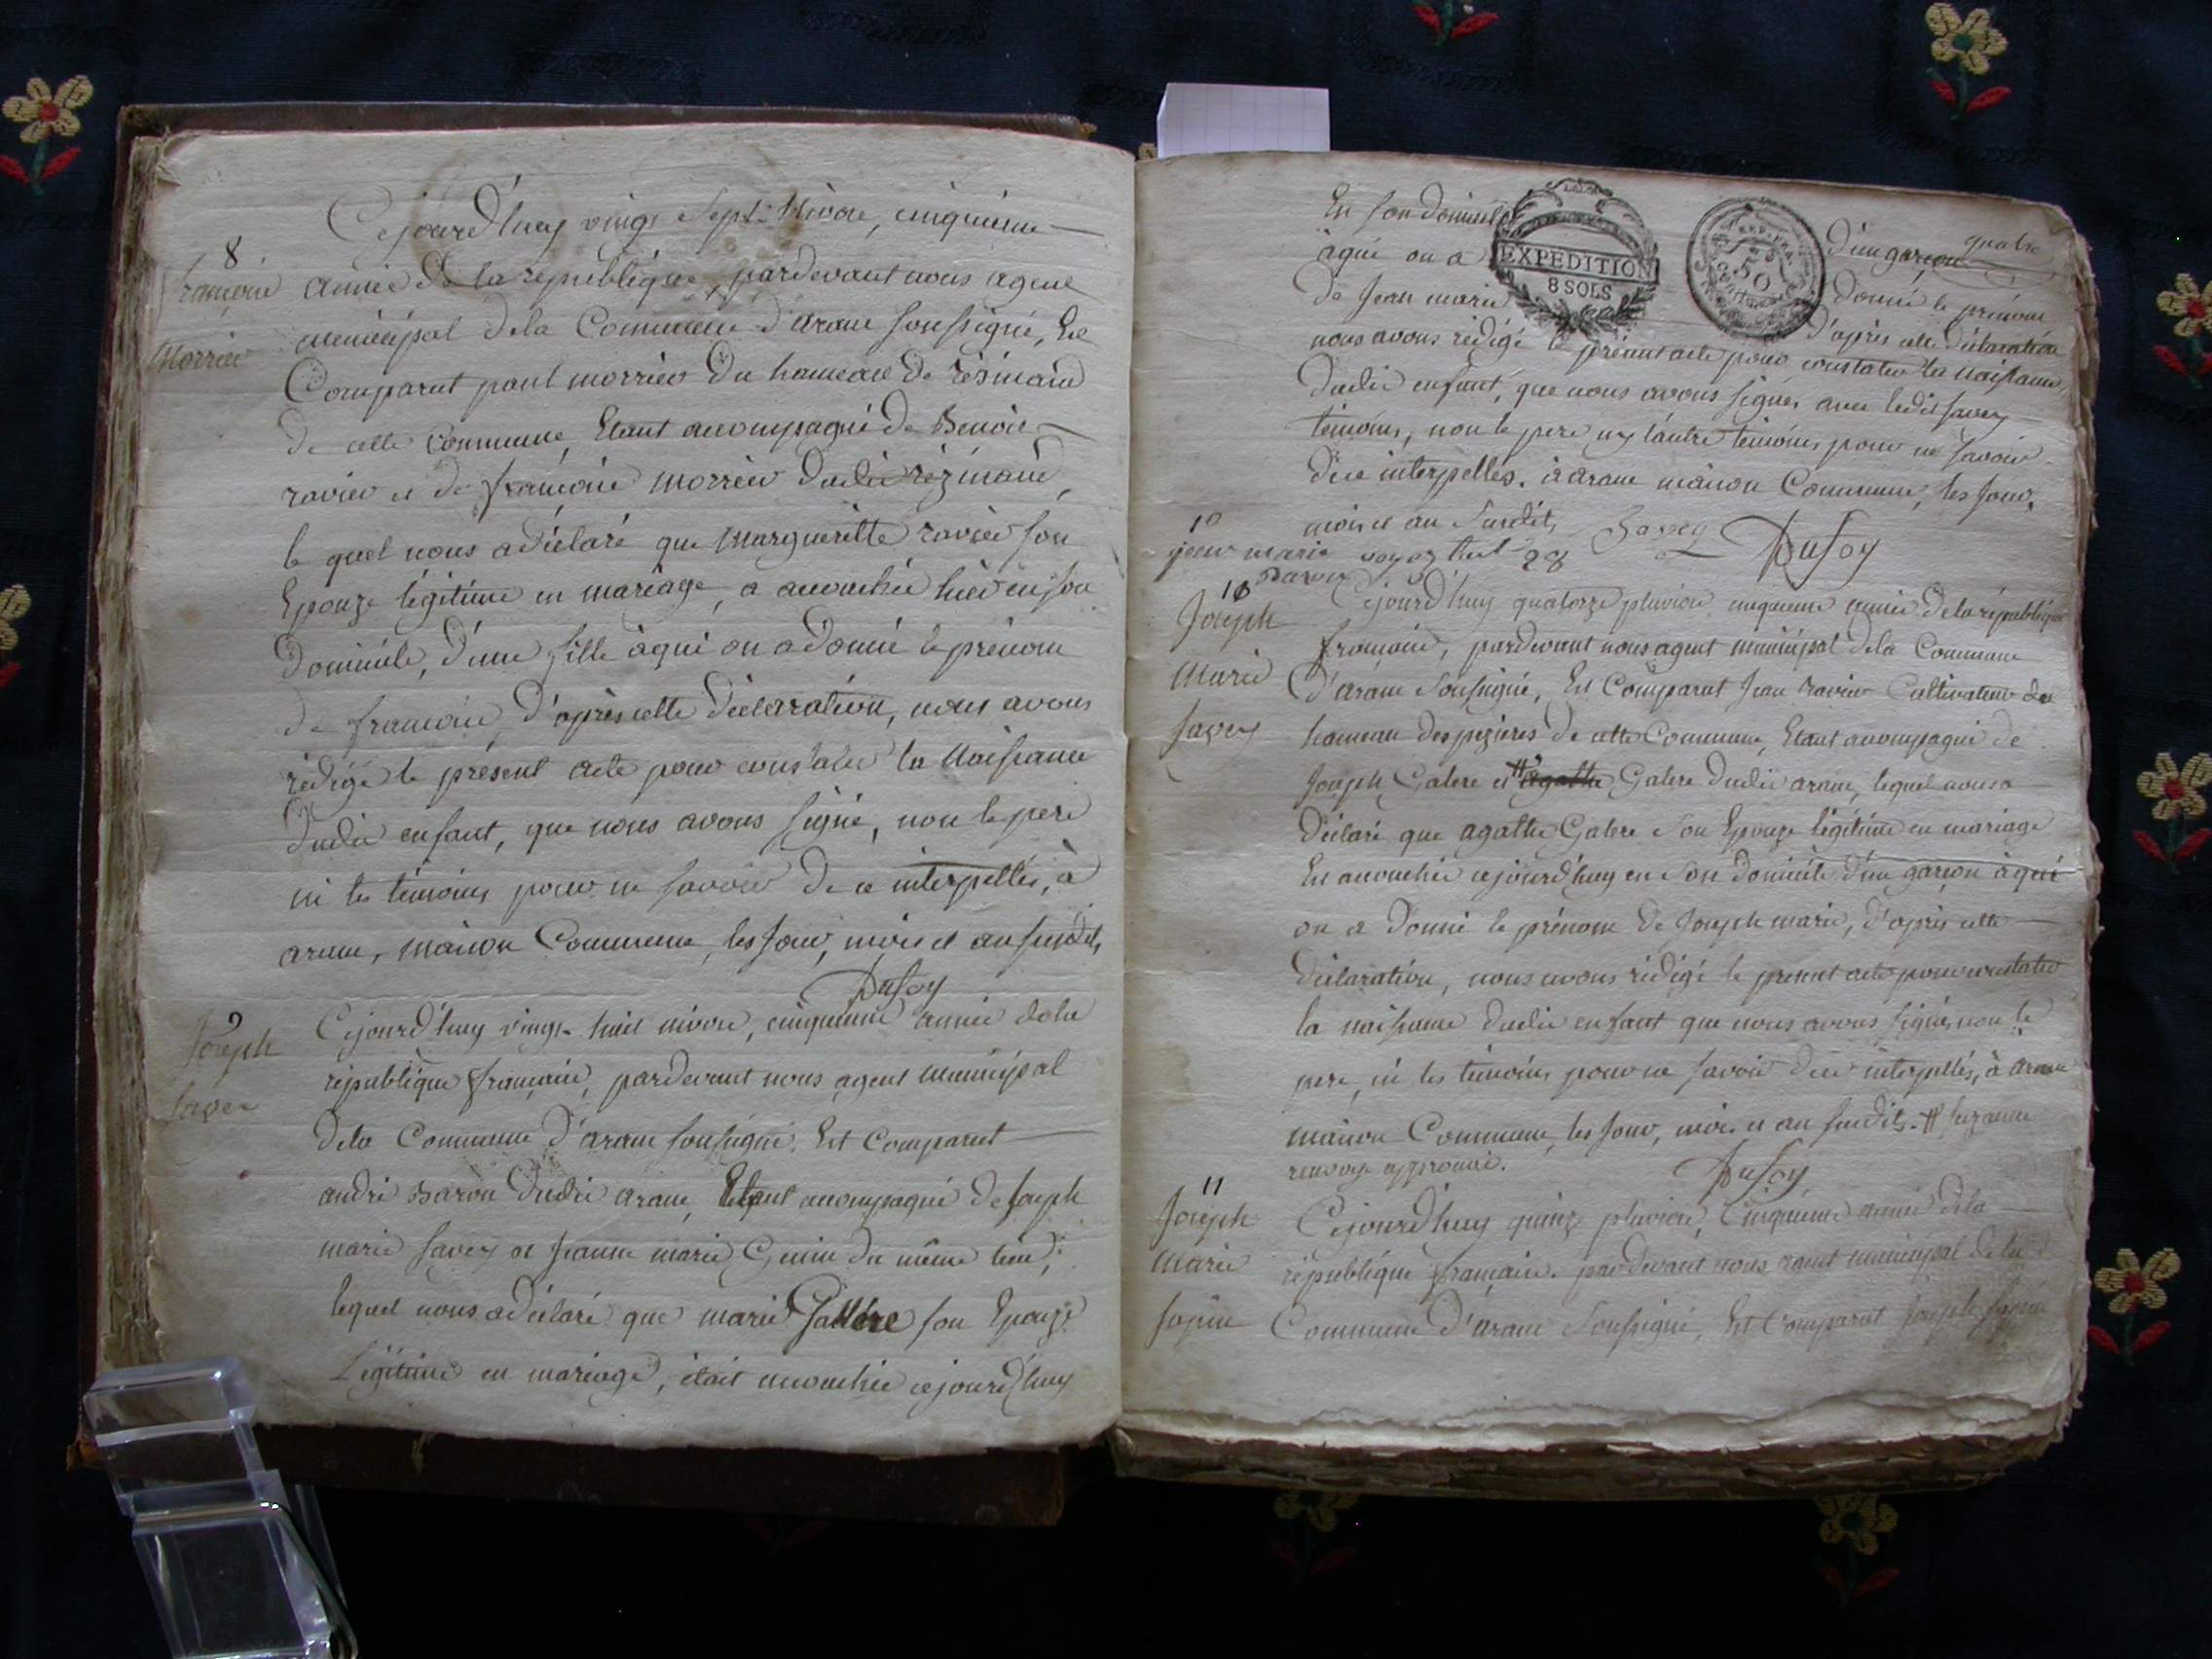 Cejourd'huy vingt sept Nivose, cinquieme
8
françoise
morrier
année de la republique, pardevant nous agent
municipal de la Commune d'arane soussigné, Est
Comparut paul morrier du hameau de résinand
de cette Commune, Etant accompagné de Benoit
ravier et de françoise morrier dudit rézinand,
le quel nous a déclaré que margueritte ravier son
Epouze légitime en mariage, a accouchée hier en son
domicile, d'une fille à qui on a donné le prénom
de françoise, d'après cette déclaration, nous avons
rédigé le présent acte pour constater la Naissance
dudit enfant, que nous avons signé, non le pere
ni les témoins pour ne savoir de ce interpellés, à
arane, maison Commune, les jour, mois et an susdits,
Dufoy
9
Joseph
savey
Cejourd'huy vingt huit nivose, cinquieme année de la
république française, pardevant nous agent municipal
de la Commune d'arane soussigné, Est Comparut
andré Baron dudit arane, Etant accompagné de Joseph
marie savey et Jeanne marie Genin du même lieu,
lequel nous a déclaré que marie Gallere son Epouze
Légitime en mariage, était accouchée cejourd'huy
En son domicile d'un garçon quatre
EXPEDITION
8 SOLS
50
à qui on a donné le prénom
de Jean marie d'après cette déclaration
nous avons rédigé le présent acte pour constater la naissance
dudit enfant, que nous avons signés avec ledit savey
témoins, non le pere ny l'autre témoins pour ne savoir
de ce interpellés. à arane maison Commune, les jour,
mois et an susdits, Savey Dufoy
10
jean marie voyez 28
Baron
10
Joseph
Marie
savey
Cejourd'huy quatorze pluviose cinquieme année de la république
française, pardevant nous agent municipal de la Commune
d'arane soussigné, Est Comparut Jean ravier Cultivateur du
hameau des pezieres de cette Commune, Etant accompagné de
Joseph Galere et # agathe Galere dudit arane, lequel nous a
déclaré que agathe Galere son Epouze légitime en mariage
Est accouchée cejourd'huy en son domicile d'un garçon à qui
on a donné le prénom de Joseph marie, d'après cette
déclaration, nous avons rédigé le present acte pour constater
la naissance dudit enfant que nous avons signés non le
pere, ni les témoins pour ne savoir de ce interpellés, à arane
maison Commune, les jour, mois et an susdits. # suzanne
renvoye approuvé. Dufoy
11
Joseph
Marie
sapin
Cejourd'huy quinze pluviose, Cinquieme année de la
république française. pardevant nous agent municipal de la
Commune d'arane soussigné, Est Comparut Joseph sapin